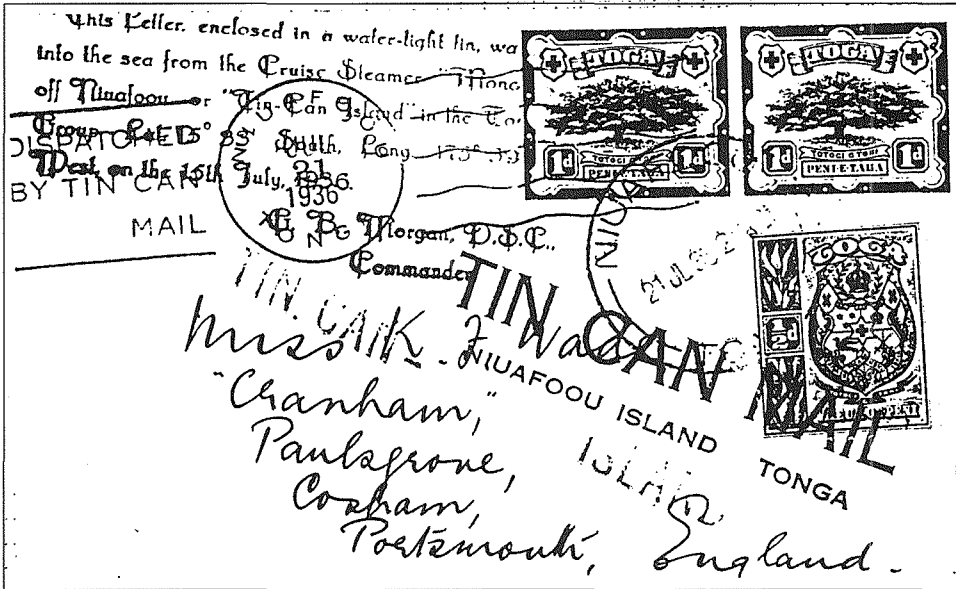 This Letter, enclosed in a water-tight tin, wa
into the sea from the Cruise Steamer
off Niuafoou or "Tin-Can Island" in the
Group. Lat. 15° South, Long.
West, on the 15th July, 1936.
G. B. Morgan, D.S.C.,
Commander
DISPATCHED
BY TIN CAN
MAIL
21
1936
TOGA
1d 1d
TOTOGI O TOHI
PENI E TAHA
TOGA
1d 1d
TOTOGI O TOHI
PENI E TAHA
21 JL 36
TOGA
½d
TIN CAN
ISLAND
TIN CAN MAIL
NIUAFOOU ISLAND TONGA
Miss K. J. Wade
"Cranham,"
Paulsgrove,
Cosham,
Portsmouth, England.